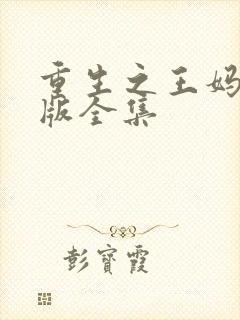 重生之王妈
版全集
彭寳霞